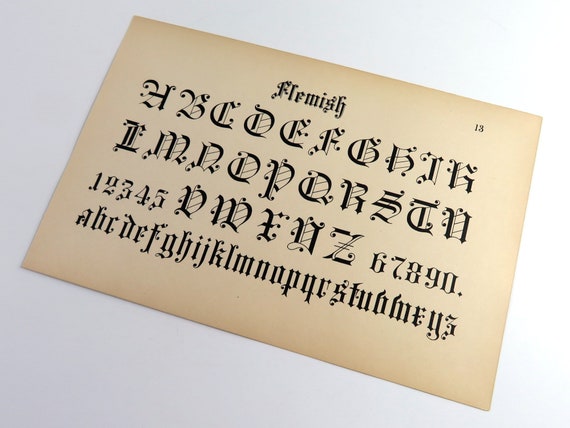 Flemish
13
ABCDEFGHIK
LMNOPQRSTU
12345 VWXYZ 67890.
abcdefghijklmnopqrstuvwxyz